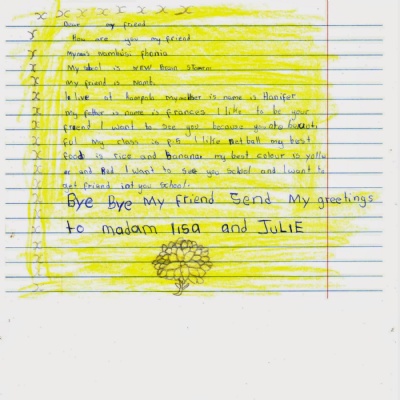 Dear my friend
How are you my friend
My name is nambubi phonia
My school is new Brain
my friend is Namb
Ie live at kampala my mother is name is Hanifer
my father is name is frances I like to be your
friend I want to see you because you are beauti
ful My class is P.5 I like net ball my best
food is rice and bananar my best colour is yellw
er and Red I want to see you school and I want to
get friend int you school:
Bye Bye My friend Send My greetings
to madam lisa and JuLIE